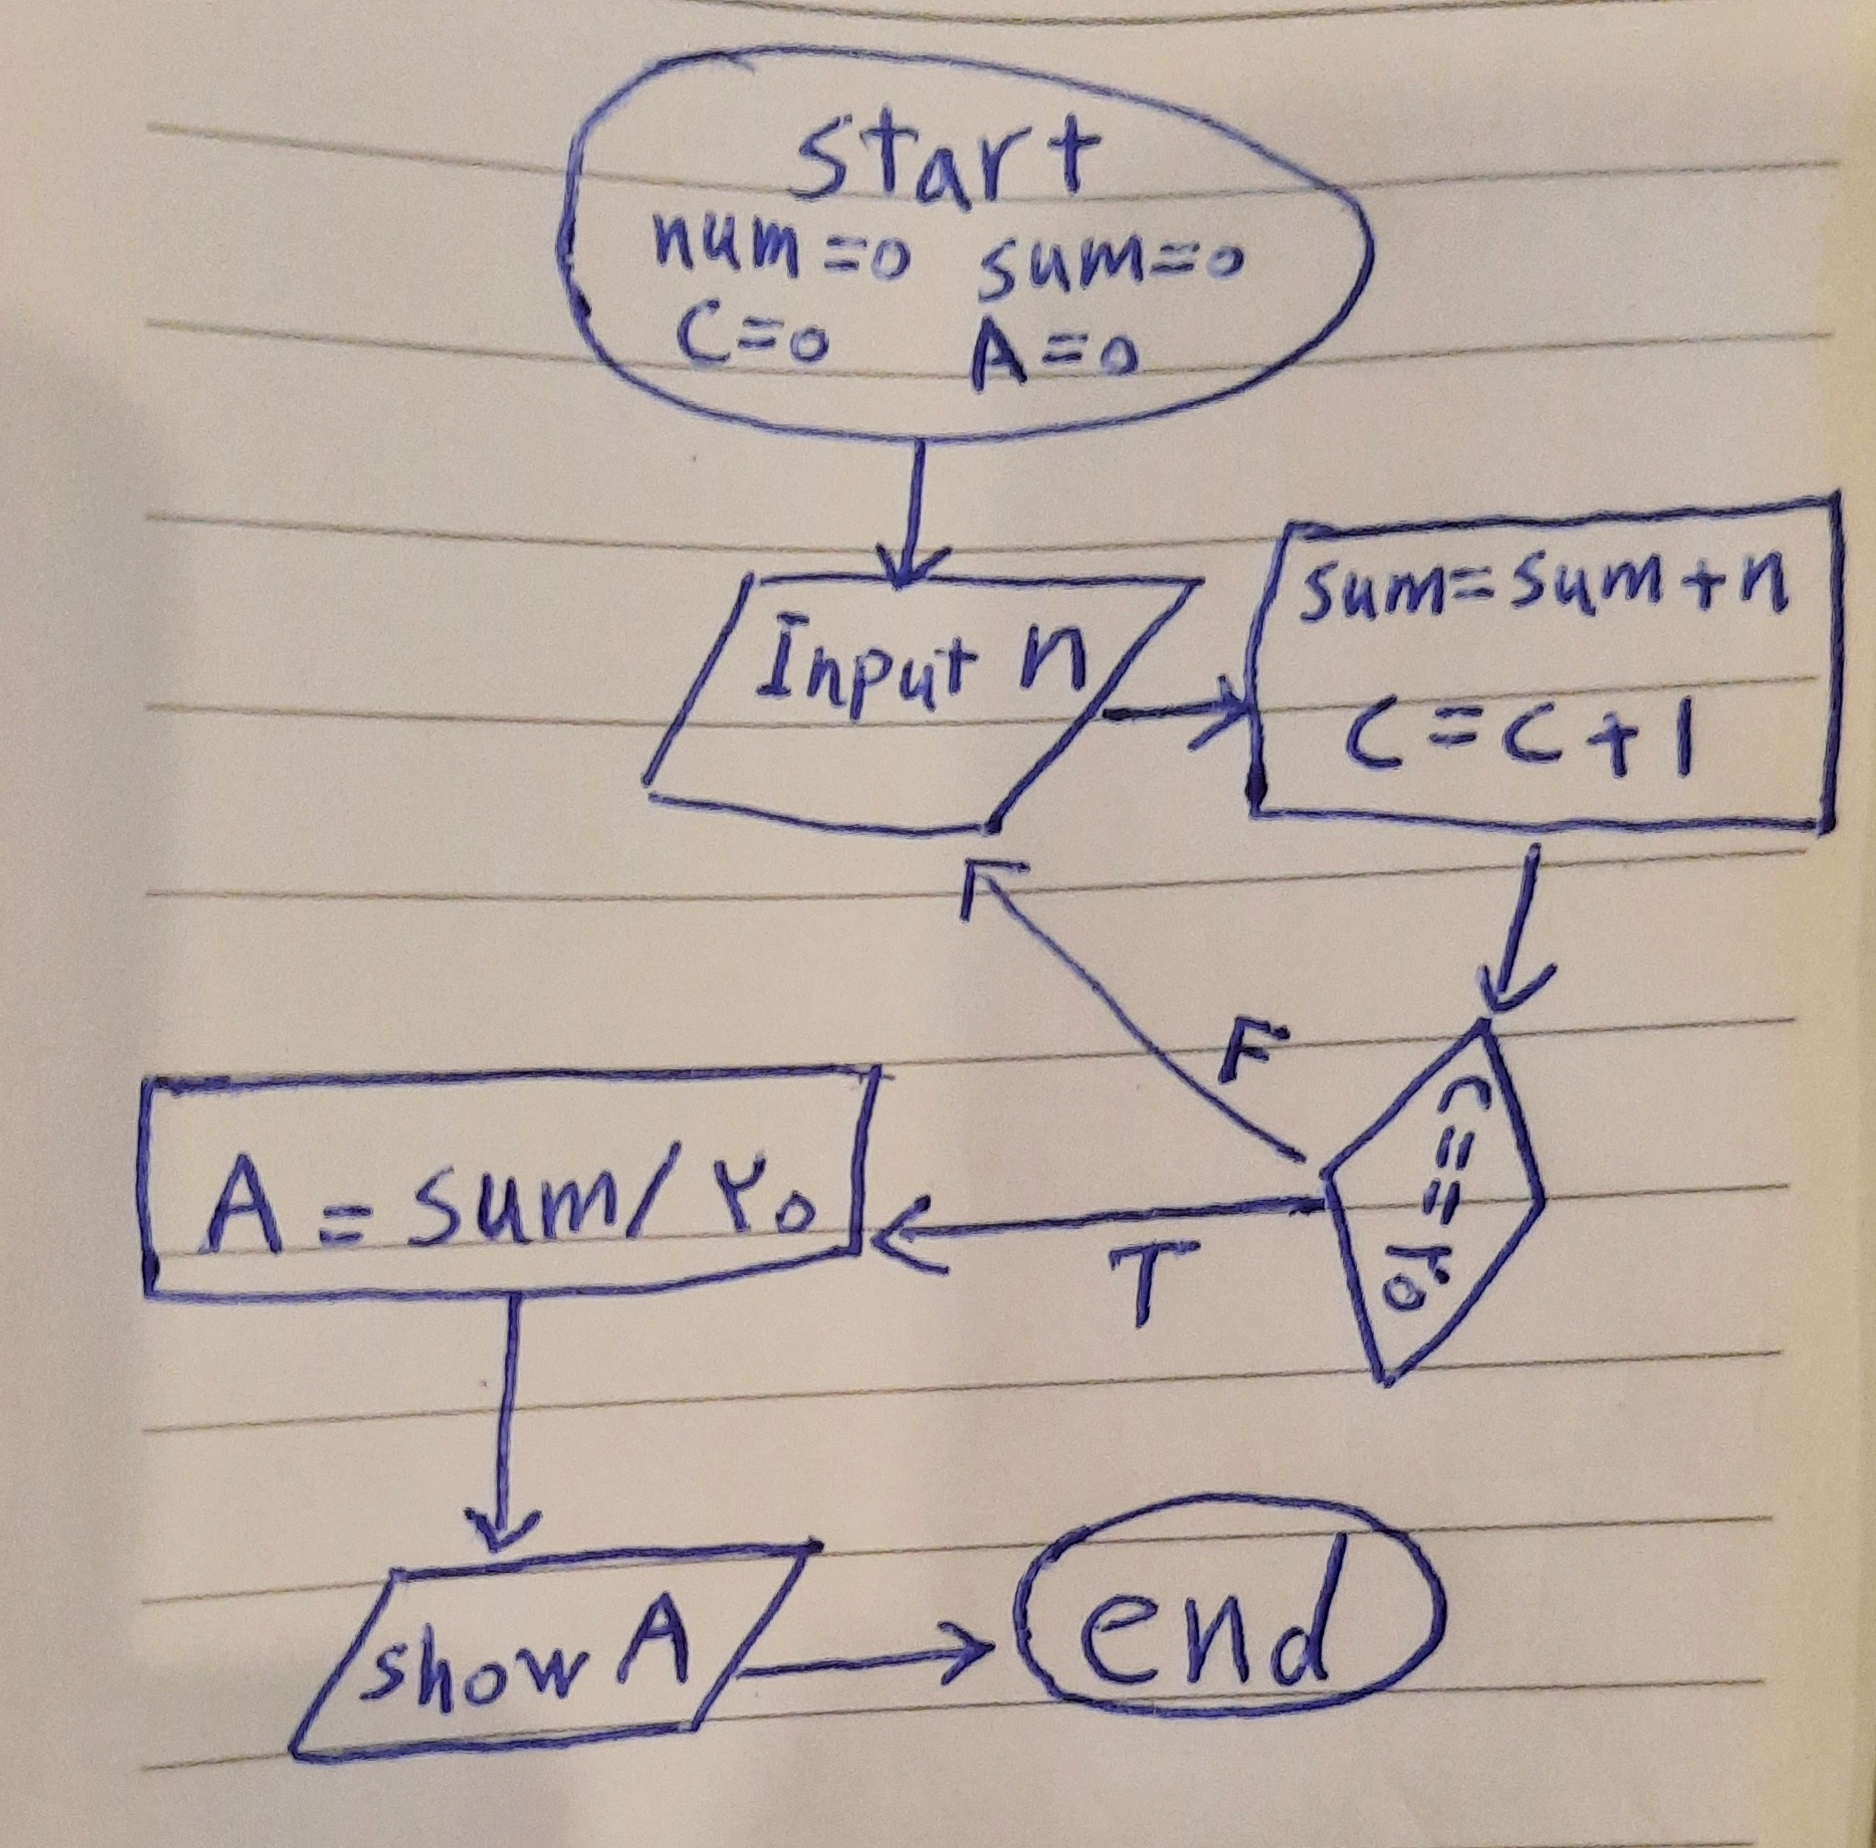 start
num=0 sum=0
C=0 A=0
Input n
sum=sum+n
C=C+1
F
C==۲0
T
A=sum/۲0
show A
end